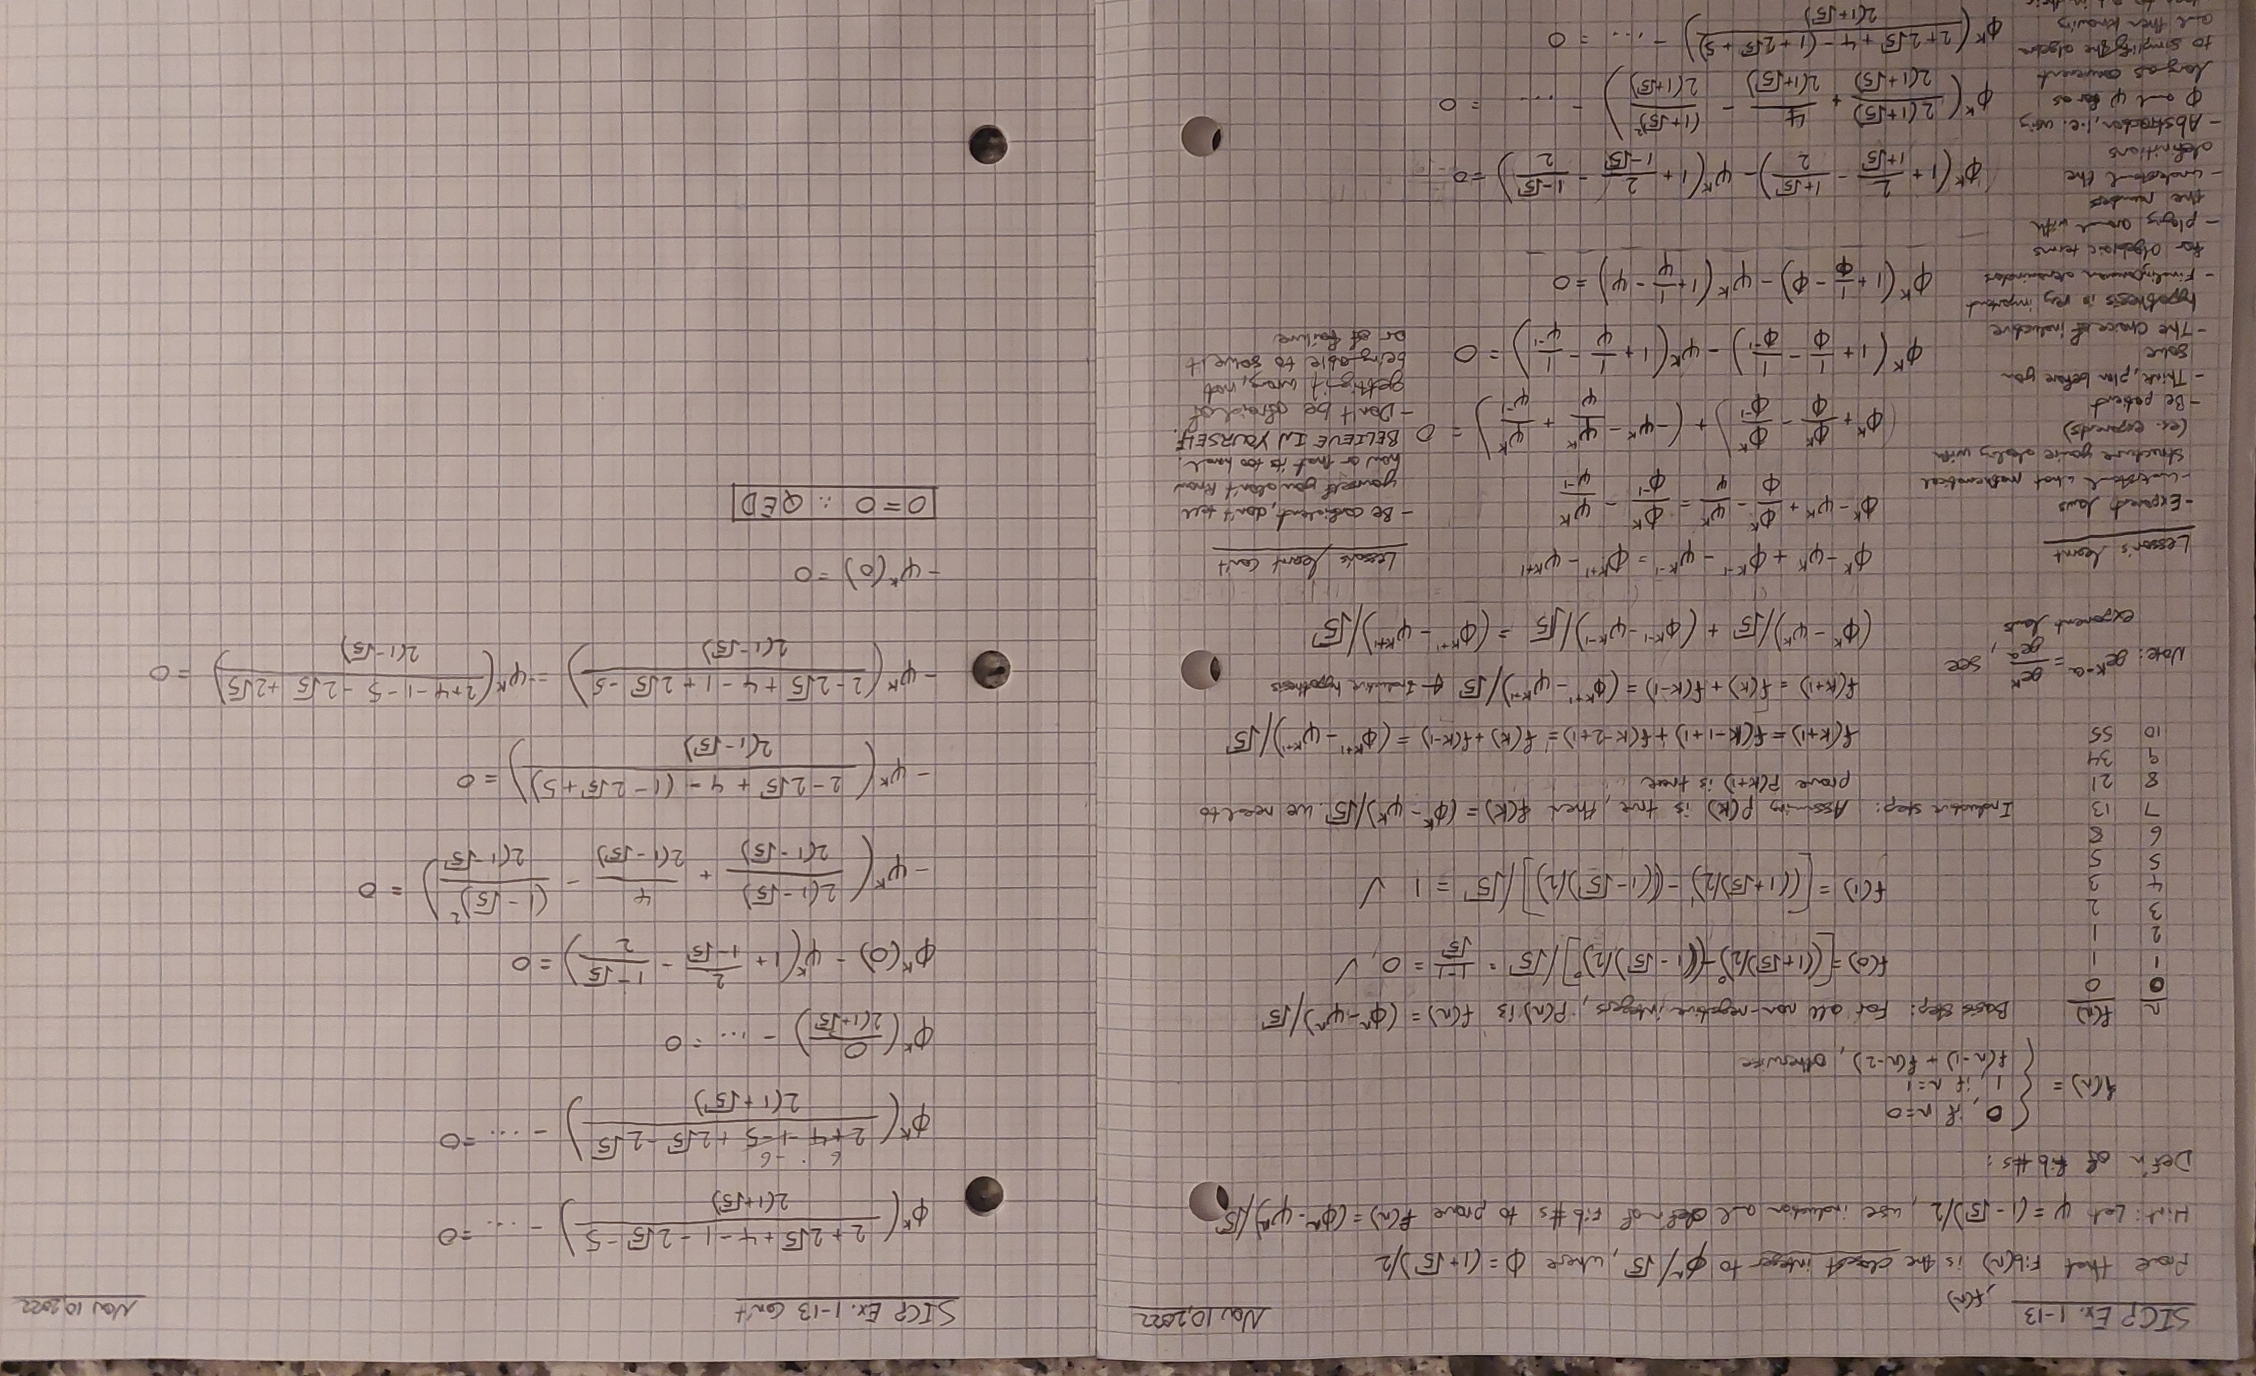 SICP Ex. 1-13
Nov 10, 2022
, f(n)
Prove that Fib(n) is the closest integer to ϕⁿ/√5, where ϕ = (1+√5)/2
Hint: Let ψ = (1-√5)/2, use induction and def'n of Fib #s to prove f(n) = (ϕⁿ - ψⁿ)/√5
Def'n of fib #s:
f(n) = { 0, if n=0
1, if n=1
f(n-1) + f(n-2), otherwise
n f(n)
0 0
1 1
2 1
3 2
4 3
5 5
6 8
7 13
8 21
9 34
10 55
Basis step: For all non-negative integers, P(n) is f(n) = (ϕⁿ - ψⁿ)/√5
f(0) = [((1+√5)/2)⁰ - ((1-√5)/2)⁰]/√5 = (1-1)/√5 = 0, ✓
f(1) = [((1+√5)/2)¹ - ((1-√5)/2)]/√5 = 1 ✓
Inductive step: Assuming P(k) is true, then f(k) = (ϕᵏ - ψᵏ)/√5. we need to
prove P(k+1) is true
f(k+1) = f(k-1+1) + f(k-2+1) = f(k) + f(k-1) = (ϕᵏ⁺¹ - ψᵏ⁺¹)/√5
f(k+1) = f(k) + f(k-1) = (ϕᵏ⁺¹ - ψᵏ⁺¹)/√5 ← Inductive hypothesis
Note: æᵏ⁻ᵃ = æᵏ/æᵃ, see
exponent laws
(ϕᵏ - ψᵏ)/√5 + (ϕᵏ⁻¹ - ψᵏ⁻¹)/√5 = (ϕᵏ⁺¹ - ψᵏ⁺¹)/√5
ϕᵏ - ψᵏ + ϕᵏ⁻¹ - ψᵏ⁻¹ = ϕᵏ⁺¹ - ψᵏ⁺¹
ϕᵏ - ψᵏ + ϕᵏ/ϕ - ψᵏ/ψ = ϕᵏ/ϕ⁻¹ - ψᵏ/ψ⁻¹
(ϕᵏ + ϕᵏ/ϕ - ϕᵏ/ϕ⁻¹) + (-ψᵏ - ψᵏ/ψ + ψᵏ/ψ⁻¹) = 0
ϕᵏ(1 + 1/ϕ - 1/ϕ⁻¹) - ψᵏ(1 + 1/ψ - 1/ψ⁻¹) = 0
ϕᵏ(1 + 1/ϕ - ϕ) - ψᵏ(1 + 1/ψ - ψ) = 0
ϕᵏ(1 + 2/(1+√5) - (1+√5)/2) - ψᵏ(1 + 2/(1-√5) - (1-√5)/2) = 0
ϕᵏ(2(1+√5)/2(1+√5) + 4/2(1+√5) - (1+√5)²/2(1+√5)) - .... = 0
ϕᵏ((2+2√5+4-(1+2√5+5))/2(1+√5)) - .... = 0
Lesson's learnt
- Exponent laws
- understand what mathematical
structure you're dealing with
(ex. exponents)
- Be patient
- Think, plan before you
solve
- The choice of inductive
hypothesis is very important
- Finding common denominators
for algebraic terms
- playing around with
the numbers
- understand the
definitions
- Abstraction, i.e. using
ϕ and ψ for as
long as convenient
to simplify the algebra
and then knowing
Lesson's learnt Con't
- Be confident, don't tell
yourself you don't know
how or that its too hard.
BELIEVE IN YOURSELF.
- Don't be afraid of
getting it wrong, not
being able to solve it
or of failure
SICP Ex. 1-13 Con't
Nov 10, 2022
ϕᵏ((2+2√5+4-1-2√5-5)/2(1+√5)) - .... = 0
6 -6
ϕᵏ((2+4-1-5+2√5-2√5)/2(1+√5)) - .... = 0
ϕᵏ(0/2(1+√5)) - .... = 0
ϕᵏ(0) - ψᵏ(1 + 2/(1-√5) - (1-√5)/2) = 0
-ψᵏ(2(1-√5)/2(1-√5) + 4/2(1-√5) - (1-√5)²/2(1-√5)) = 0
-ψᵏ((2-2√5+4-(1-2√5+5))/2(1-√5)) = 0
-ψᵏ((2-2√5+4-1+2√5-5)/2(1-√5)) = -ψᵏ((2+4-1-5-2√5+2√5)/2(1-√5)) = 0
-ψᵏ(0) = 0
0=0 ∴ QED